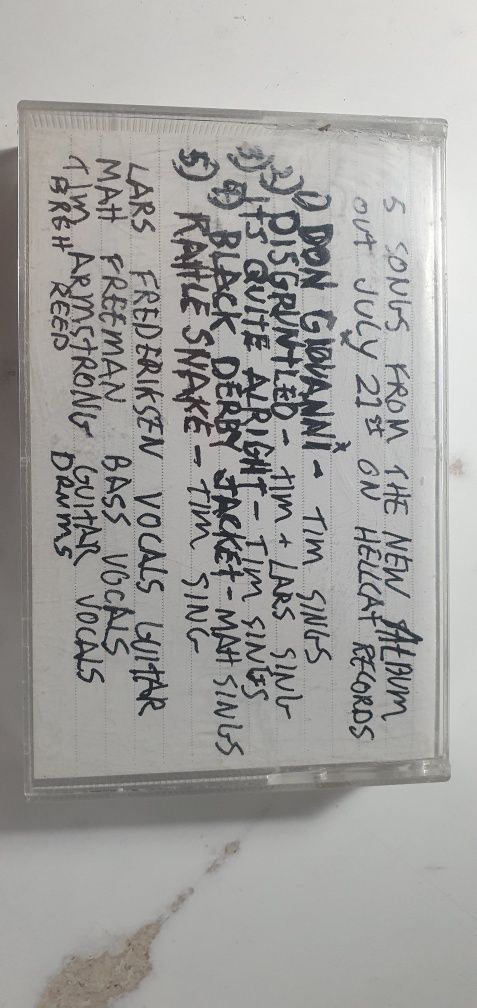 5 SONGS FROM THE NEW ALBUM
OUT JULY 21ST ON HELLCAT RECORDS
1) DON GIOVANNI - TIM SINGS
2) DISGRUNTLED - TIM + LARS SING
3) ITS QUITE ALRIGHT - TIM SINGS
4) BLACK DERBY JACKET - MATT SINGS
5) RATTLESNAKE - TIM SING
LARS FREDERIKSEN VOCALS GUITAR
MATT FREEMAN BASS VOCALS
TIM ARMSTRONG GUITAR VOCALS
BRETT REED DRUMS